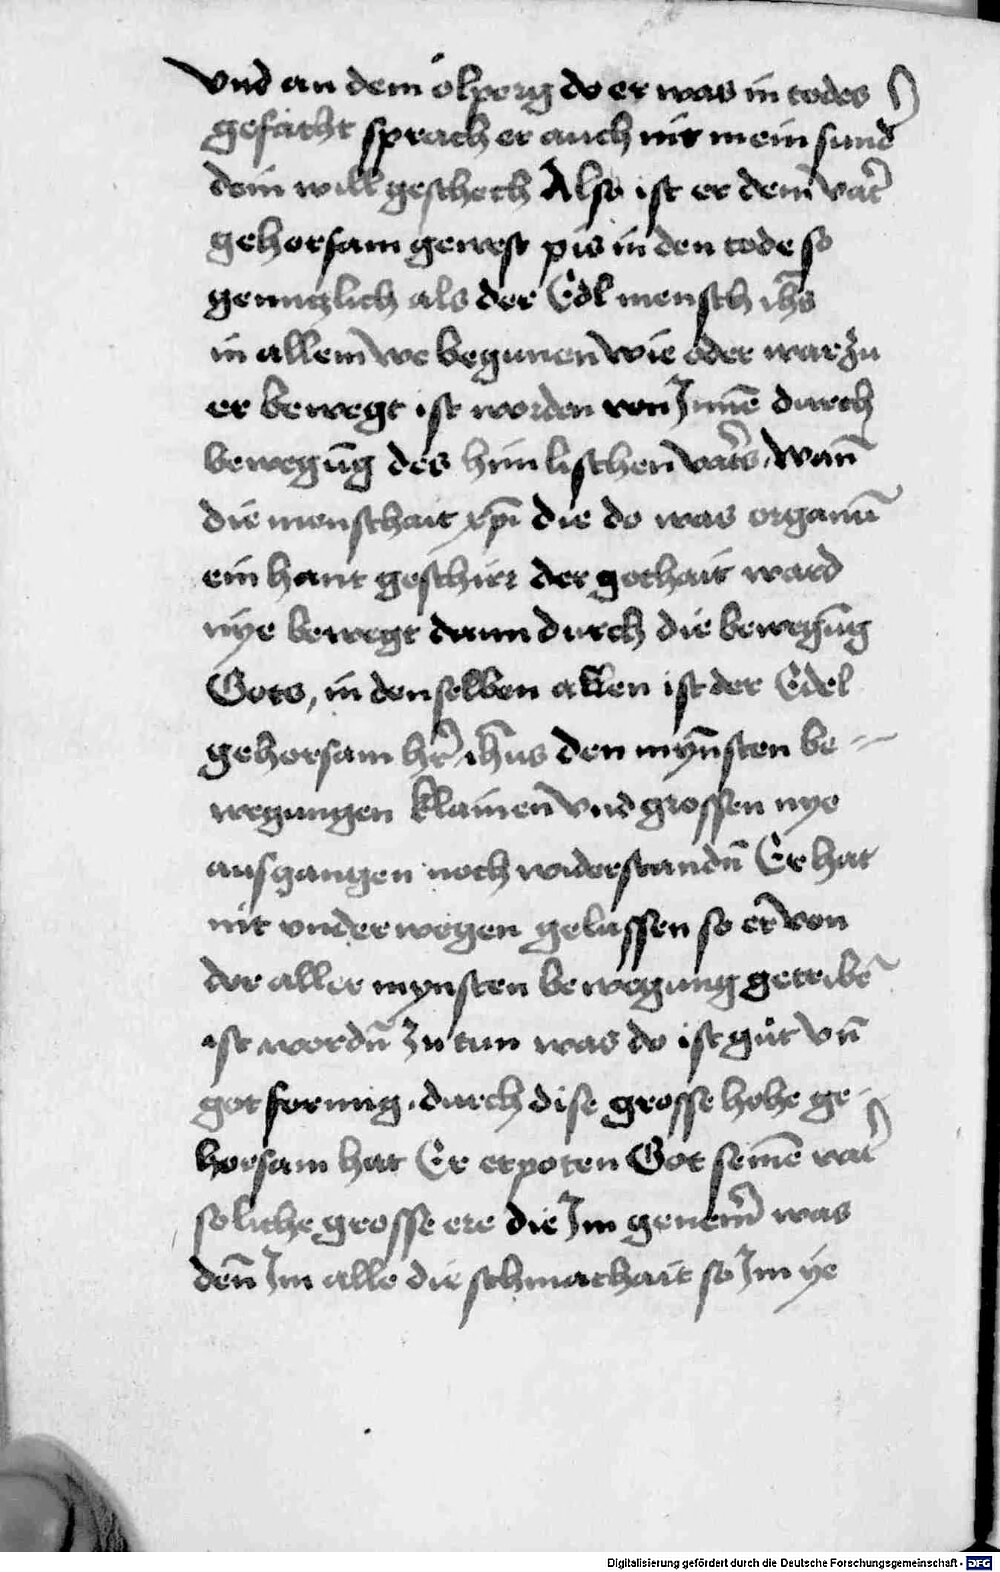 Vnd an dem ölperg do er was in todes
gefächt sprach er auch nit mein sund̄
dein will geschech Also ist er dem vat̄
gehorsam gewest pis in den tode so
genuglich als der Edl mensch ih̄s
in allem we begunen wie oder war zu
er bewegt ist worden von Jnnē durch
bewegūg des himlischen vat̄s, wan̄
die menschait xp̄i die do was organū
ein hant geschirr der gothait ward
nÿe bewegt dann durch die bewegūg
Gots, in denselben allen ist der Edel
gehorsam hr̄ ih̄us den myn̄sten be-
wegungen klainen vnd grossen nye
ausgangen noch widerstandn̄ Er hat
nit vnderwegen gelassen so er von
der aller mynsten bewegung getribē
ist wordn̄ zu tun was do ist gůt vn̄
got formig. durch dise grosse hohe ge-
horsam hat Er erpoten Got seinē vat̄
soliche grosse ere die Jm genem̄ was
den̄ Jm alle die schmachait so Jm ÿe
Digitalisierung gefördert durch die Deutsche Forschungsgemeinschaft - DFG